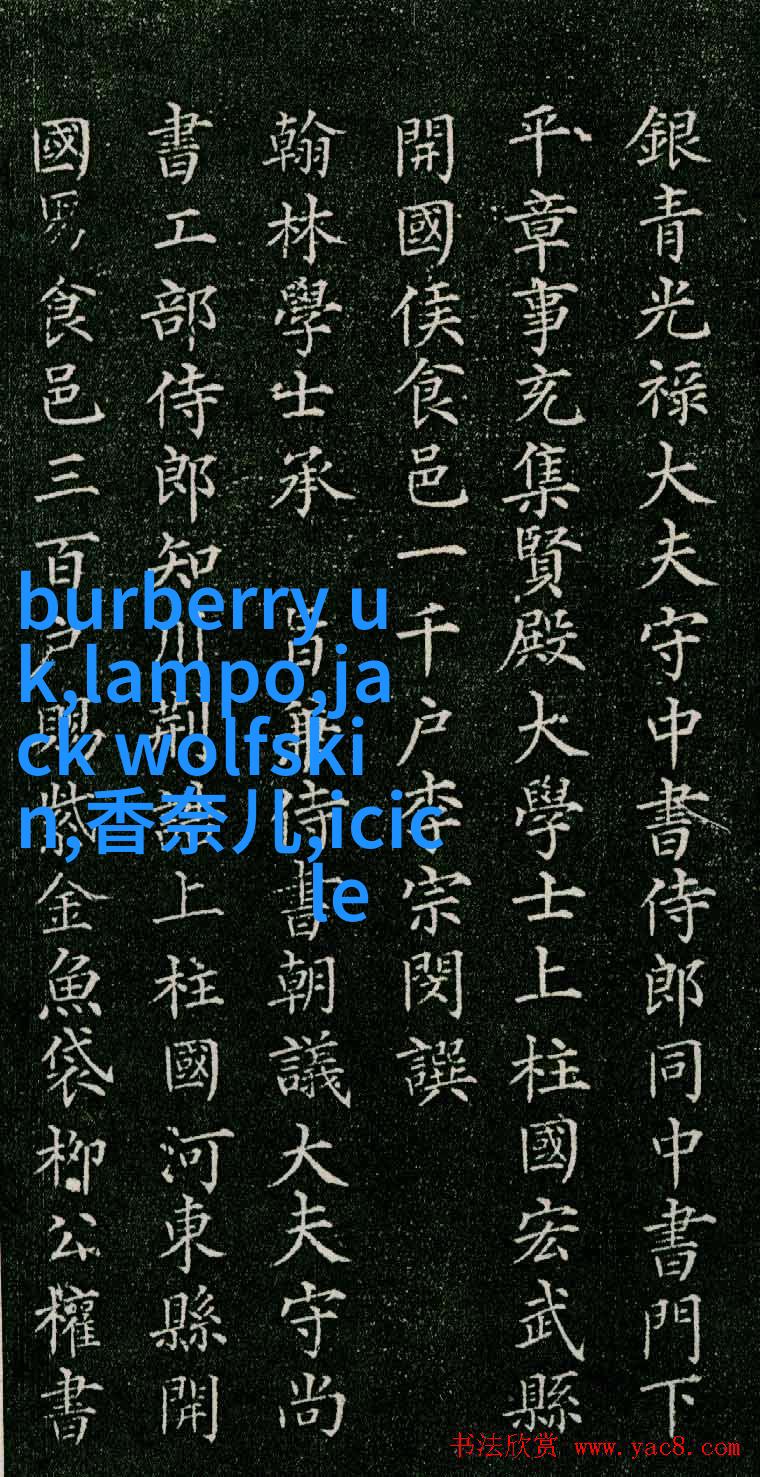 銀青光祿大夫守中書侍郎同中書門下
平章事充集賢殿大學士上柱國宏武縣
開國侯食邑一千户李宗閔譔
翰林學士承旨兼侍書朝議大夫守尚
書工部侍郎知上柱國河東縣開
國男食邑三百户賜紫金魚袋柳公權書
burberry u
k,lampo,ja
ck wolfski
n,香奈儿,icic
le
书法欣赏 www.yac8.com